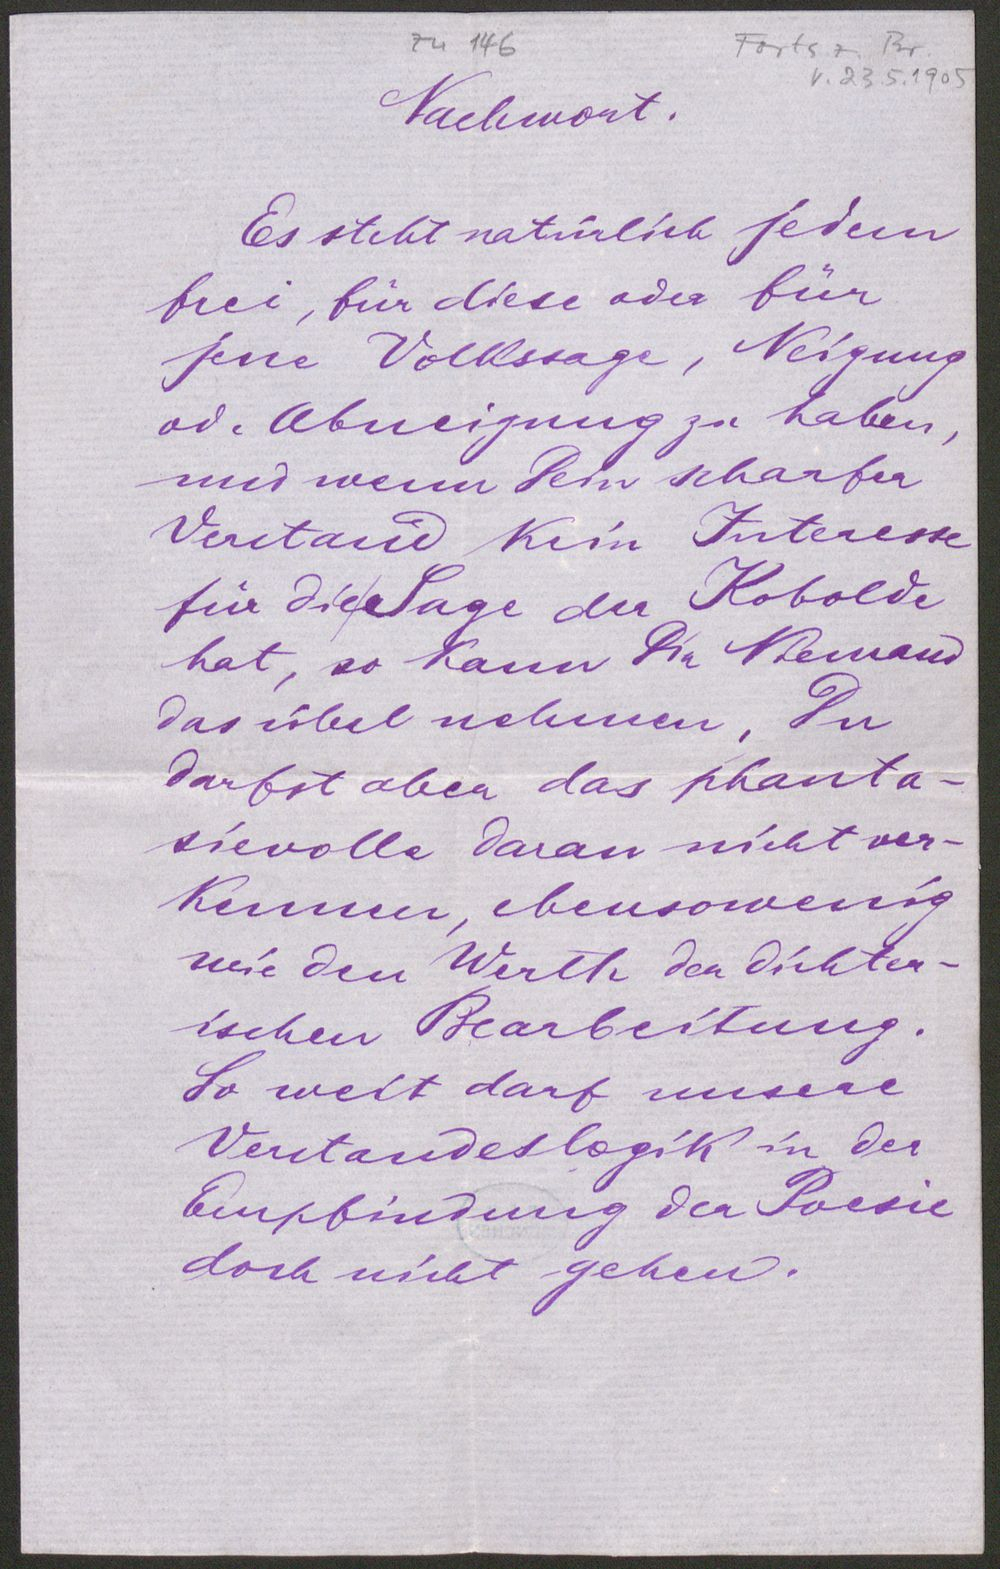 zu 146
Forts z. Br.
v. 23.5.1905
Nachwort.
Es steht natürlich jedem
frei, für diese oder für
jene Volkssage, Neigung
od. Abneigung zu haben,
und wenn Dein scharfer
Verstand kein Interesse
für die Sage der Kobolde
hat, so kann Dir Niemand
das übel nehmen, Du
darfst aber das phanta-
sievolle daran nicht ver-
kennen, ebensowenig
wie den Werth der dichter-
ischen Bearbeitung.
So weit darf unsere
Verstandeslogik in der
Empfindung der Poesie
doch nicht gehen.